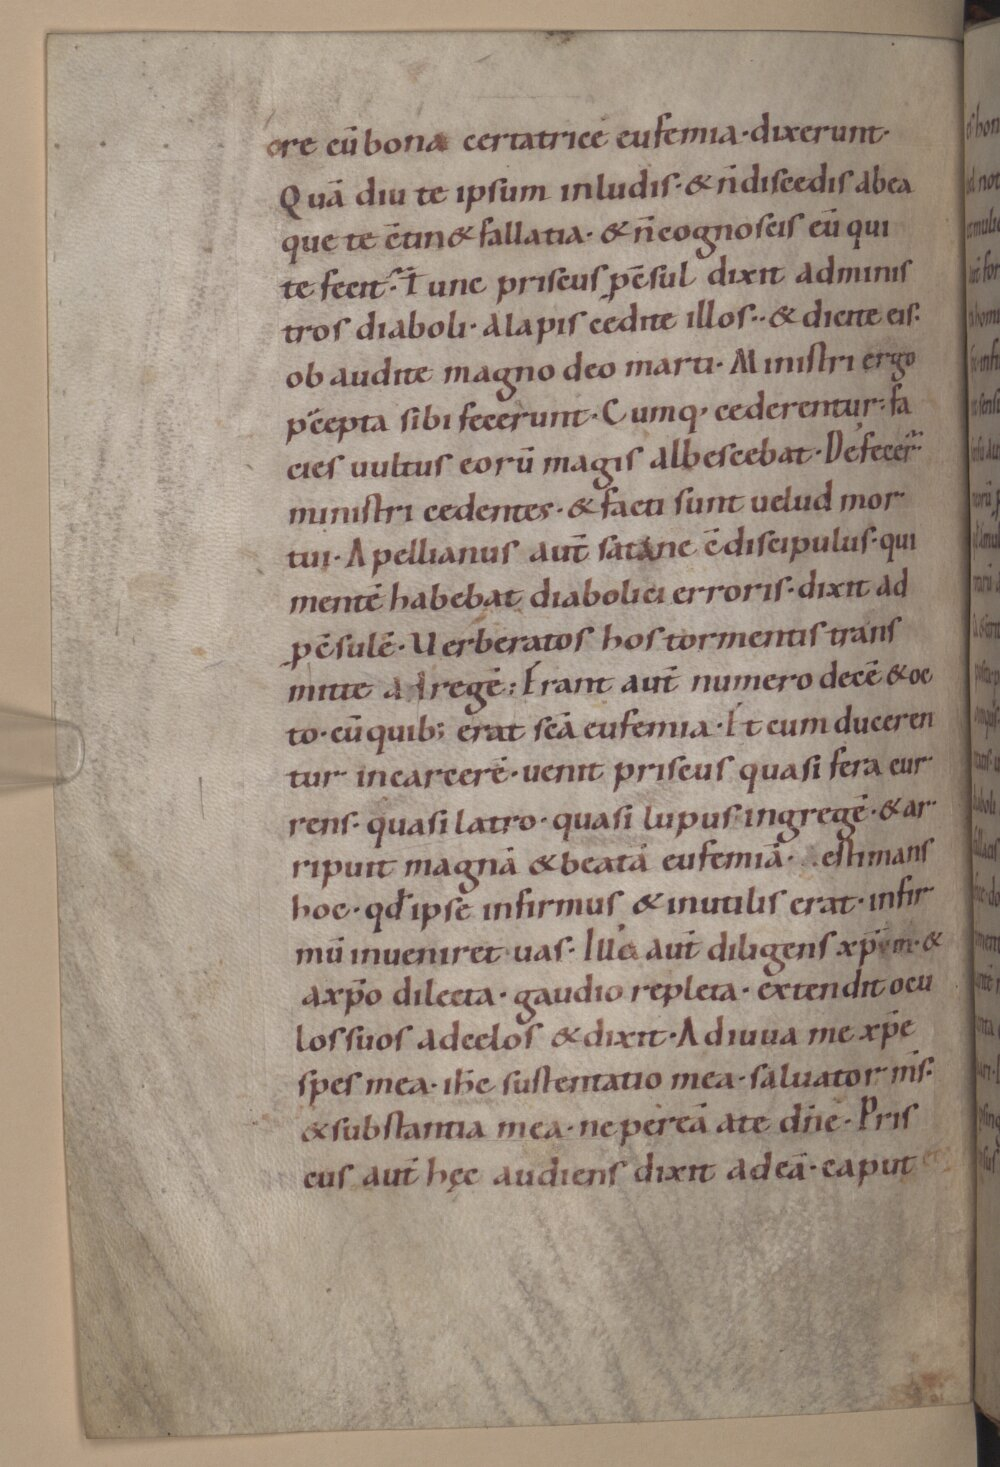 ore eū bona certatrice eufemia · dixerunt ·
Quā diu te ipsum inludis · & n̄ discedis abea
que te c̄tin& fallatia · & n̄ cognoscis eū qui
te fecit · Tunc priscus p̄sul dixit adminis
tros diaboli · alapis cedite illos · & dicite eis :
ob audite magno deo marti · Ministri ergo
p̄cepta sibi fecerunt · Cumq · cederentur : fa
cies uultus eorū magis albescebat · Defecer̄
ministri cedentes · & facti sunt uelud mor
tui · Apellianus aut̄ satane c̄discipulus · qui
mentē habebat diabolici erroris · dixit ad
p̄sulē · Uerberatos hos tormentis trans
mitte ad regē : Erant aut̄ numero decē & oc
to · cū quib; erat sc̄a eufemia · Et cumduceren
tur incarcerē · uenit priscus quasi fera cur
rens · quasi latro · quasi lupus ingregē · & ar
ripuit magnā & beatā eufemiā · estimans
hoc · qd̄ ipse infirmus & inutilis erat · infir
mū inueniret uas · Illa aut̄ diligens xp̄m · &
axp̄o dilecta · gaudio repleta · extendit ocu
los suos adcelos & dixit · Adiuua me xp̄e
spes mea · ih̄e sustentatio mea · saluator m̄s ·
& substantia mea · ne pereā ate dn̄e · Pris
cus aut̄ hęc audiens dixit adeā · caput